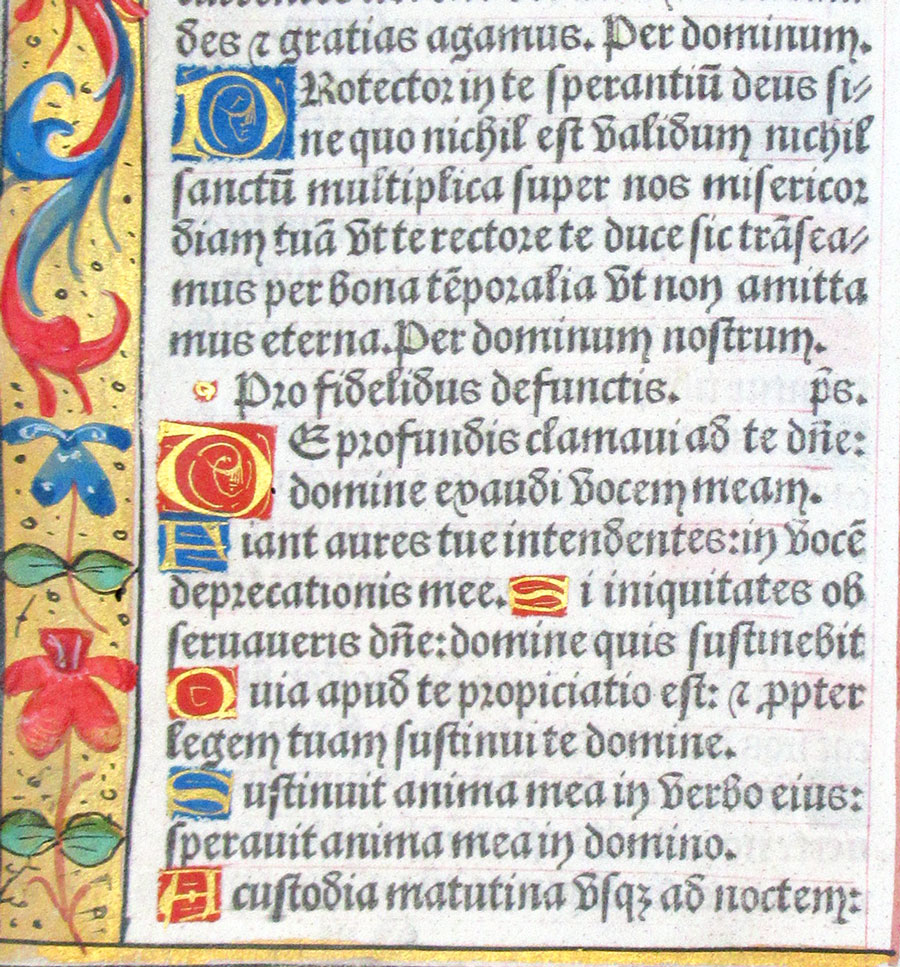 des ⁊ gratias agamus. Per dominum.
PRotector in te sperantiū deus si⸗
ne quo nichil est validum nichil
sanctū multiplica super nos misericor
diam tuā vt te rectore te duce sic trāsea⸗
mus per bona tēporalia vt non amitta
mus eterna. Per dominum nostrum.
Pro fidelidus defunctis. p̄s.
DE profundis clamaui ad te dn̄e:
domine exaudi vocem meam.
Fiant aures tue intendentes: in vocē
deprecationis mee. Si iniquitates ob
seruaueris dn̄e: domine quis sustinebit
Quia apud te propiciatio est: ⁊ ꝓpter
legem tuam sustinui te domine.
Sustinuit anima mea in verbo eius:
sperauit anima mea in domino.
A custodia matutina vsqꝫ ad noctem: